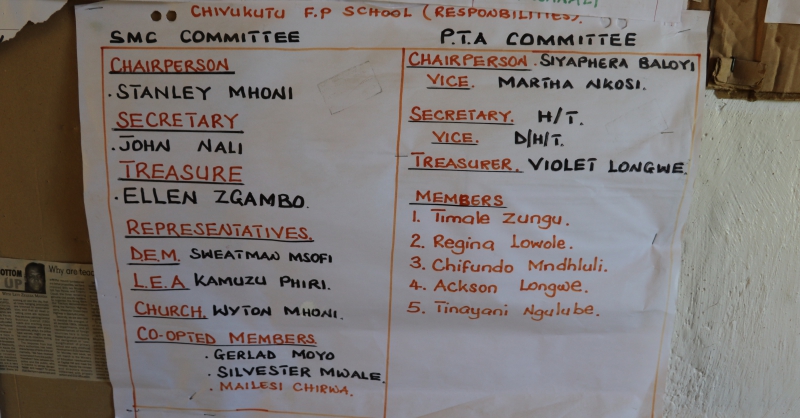 CHIVUKUTU F.P SCHOOL (RESPONBILITIES).
SMC COMMITTEE
CHAIRPERSON
. STANLEY MHONI
SECRETARY
. JOHN NALI
TREASURE
. ELLEN ZGAMBO.
REPRESENTATIVES.
D.E.M. SWEATMAN MSOFI
L.E.A KAMUZU PHIRI.
CHURCH. WYTON MHONI.
CO-OPTED MEMBERS
. GERLAD MOYO
. SILVESTER MWALE.
. MAILESI CHIRWA.
P.T.A COMMITTEE
CHAIRPERSON. SIYAPHERA BALOYI
VICE. MARTHA NKOSI.
SECRETARY. H/T.
VICE. D/H/T.
TREASURER. VIOLET LONGWE.
MEMBERS
1. Timale Zungu.
2. Regina Lowole.
3. Chifundo Mndhluli.
4. Ackson Longwe.
5. Tinayani Ngulube.
BOTTOM UP
Why are teac